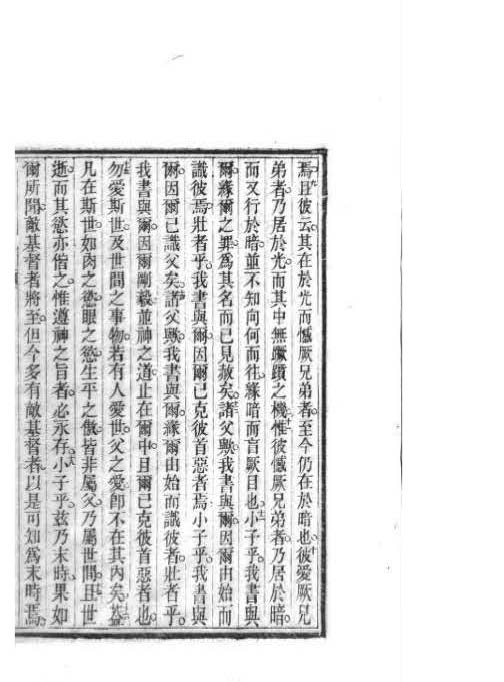 焉且彼云其在於光而憾厥兄弟者至今仍在於暗也彼愛厥兄
弟者乃居於光而其中無蹶躓之機惟彼憾厥兄弟者乃居於暗
而又行於暗並不知向何而往緣暗而盲厥目也小子乎我書與
爾緣爾之罪為其名而已見赦矣諸父歟我書與爾因爾由始而
識彼焉壯者乎我書與爾因爾已克彼首惡者焉小子乎我書與
爾因爾已識父矣諸父歟我書與爾緣爾由始而識彼者壯者乎
我書與爾因爾剛毅並神之道止在爾中且爾已克彼首惡者也
勿愛斯世及世間之事物若有人愛世父之愛卽不在其內矣蓋
凡在斯世如肉之慾眼之慾生平之傲皆非屬父乃屬世間且世
逝而其慾亦偕之惟遵神之旨者必永存小子乎茲乃末時果如
爾所聞敵基督者將至但今多有敵基督者以是可知為末時焉